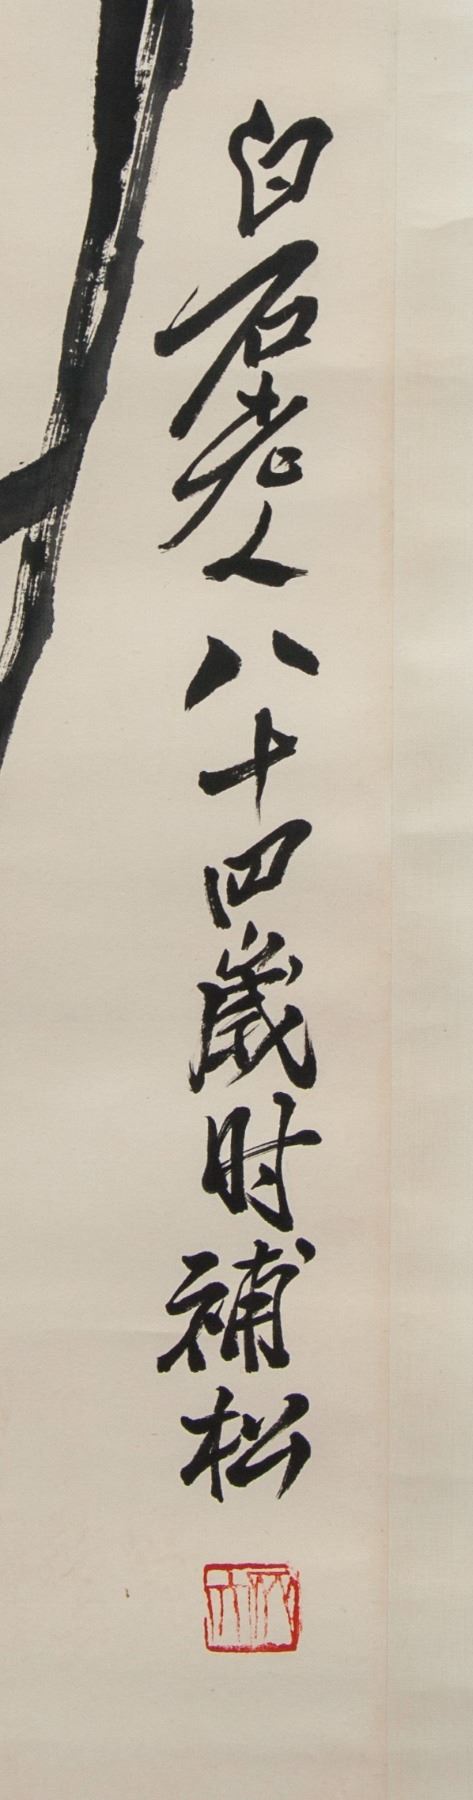 白石老人八十四歲时補松